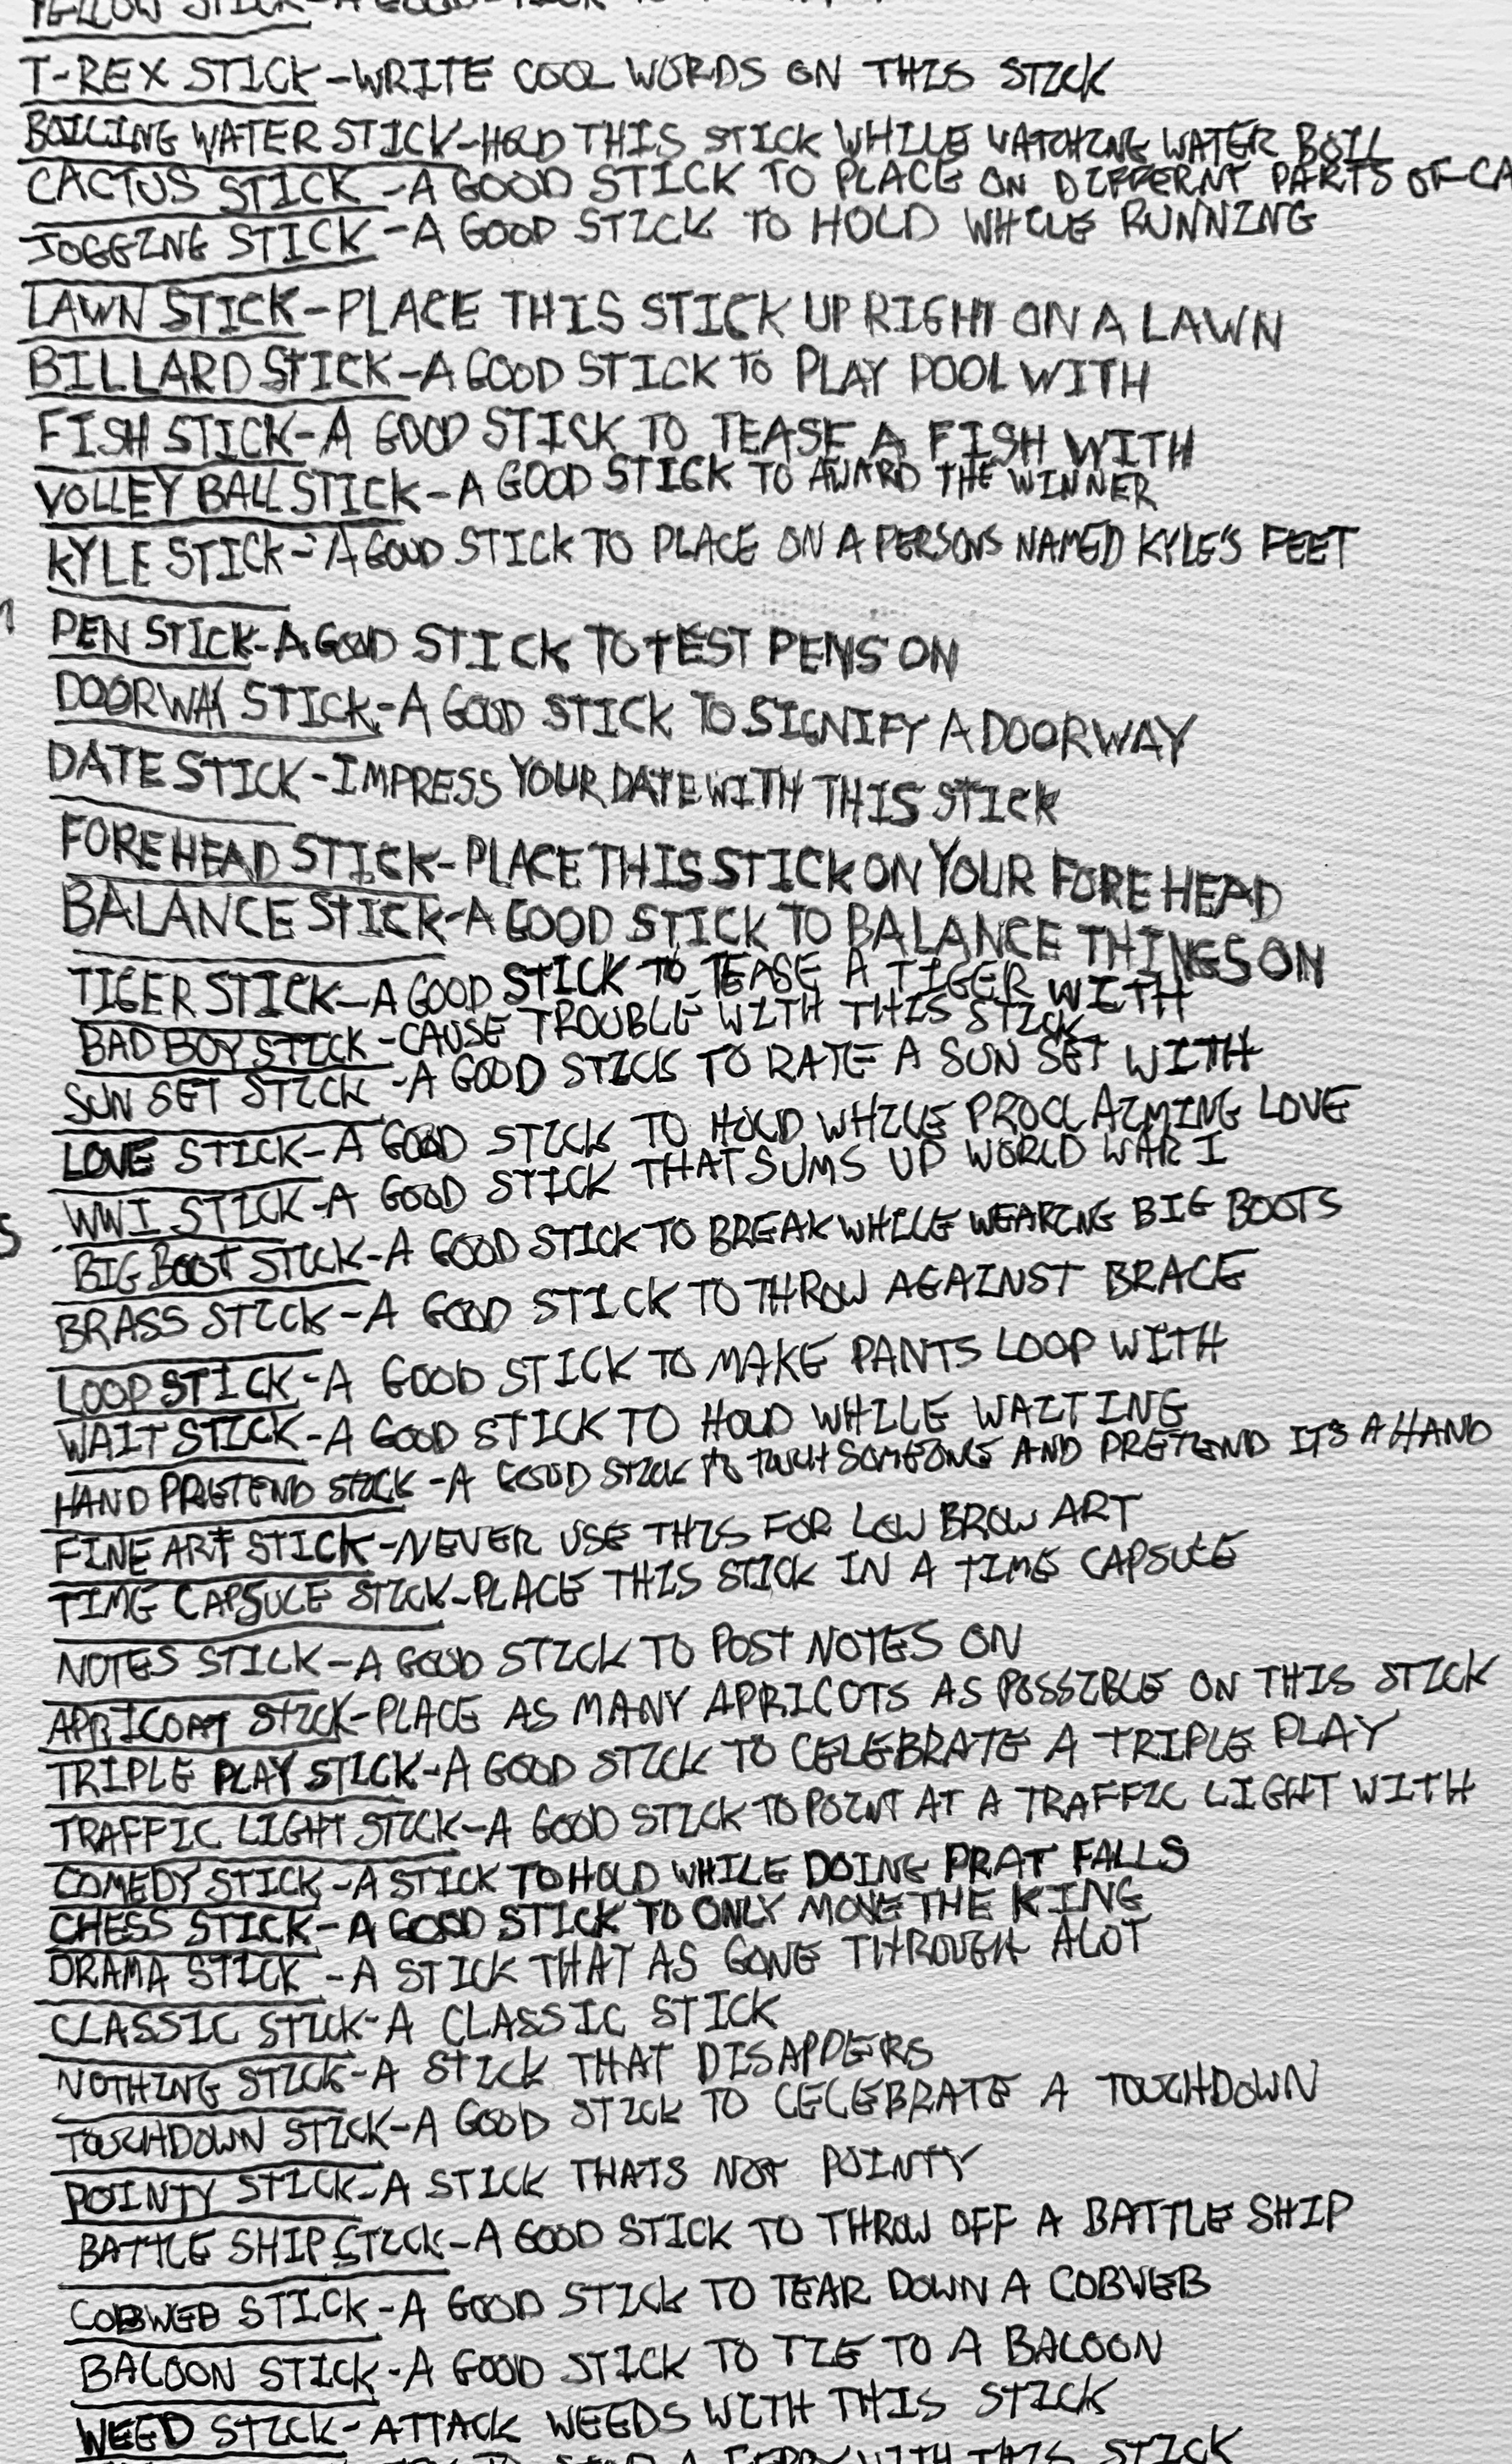 YELLOW STICK-A GOOD STICK TO
T-REX STICK-WRITE COOL WORDS ON THIS STICK
BOILING WATER STICK-HOLD THIS STICK WHILE WATCHING WATER BOIL
CACTUS STICK-A GOOD STICK TO PLACE ON DIFFERNT PARTS OF CA
JOGGING STICK-A GOOD STICK TO HOLD WHILE RUNNING
LAWN STICK-PLACE THIS STICK UPRIGHT ON A LAWN
BILLARD STICK-A GOOD STICK TO PLAY POOL WITH
FISH STICK-A GOOD STICK TO TEASE A FISH WITH
VOLLEY BALL STICK-A GOOD STICK TO AWARD THE WINNER
KYLE STICK-A GOOD STICK TO PLACE ON A PERSONS NAMED KYLE'S FEET
PEN STICK-A GOOD STICK TO TEST PENS ON
DOORWAY STICK-A GOOD STICK TO SIGNIFY A DOORWAY
DATE STICK-IMPRESS YOUR DATE WITH THIS STICK
FOREHEAD STICK-PLACE THIS STICK ON YOUR FOREHEAD
BALANCE STICK-A GOOD STICK TO BALANCE THINGS ON
TIGER STICK-A GOOD STICK TO TEASE A TIGER WITH
BAD BOY STICK-CAUSE TROUBLE WITH THIS STICK
SUN SET STICK-A GOOD STICK TO RATE A SUN SET WITH
LOVE STICK-A GOOD STICK TO HOLD WHILE PROCLAIMING LOVE
WWI STICK-A GOOD STICK THAT SUMS UP WORLD WAR I
BIG BOOT STICK-A GOOD STICK TO BREAK WHILE WEARING BIG BOOTS
BRASS STICK-A GOOD STICK TO THROW AGAINST BRACE
LOOP STICK-A GOOD STICK TO MAKE PANTS LOOP WITH
WAIT STICK-A GOOD STICK TO HOLD WHILE WAITING
HAND PRETEND STICK-A GOOD STICK TO TOUCH SOMEONE AND PRETEND IT'S A HAND
FINE ART STICK-NEVER USE THIS FOR LOW BROW ART
TIME CAPSULE STICK-PLACE THIS STICK IN A TIME CAPSULE
NOTES STICK-A GOOD STICK TO POST NOTES ON
APRICOAT STICK-PLACE AS MANY APRICOTS AS POSSIBLE ON THIS STICK
TRIPLE PLAY STICK-A GOOD STICK TO CELEBRATE A TRIPLE PLAY
TRAFFIC LIGHT STICK-A GOOD STICK TO POINT AT A TRAFFIC LIGHT WITH
COMEDY STICK-A STICK TO HOLD WHILE DOING PRAT FALLS
CHESS STICK-A GOOD STICK TO ONLY MOVE THE KING
DRAMA STICK-A STICK THAT AS GONE THROUGH ALOT
CLASSIC STICK-A CLASSIC STICK
NOTHING STICK-A STICK THAT DISAPPERS
TOUCHDOWN STICK-A GOOD STICK TO CELEBRATE A TOUCHDOWN
POINTY STICK-A STICK THATS NOT POINTY
BATTLE SHIP STICK-A GOOD STICK TO THROW OFF A BATTLE SHIP
COBWEB STICK-A GOOD STICK TO TEAR DOWN A COBWEB
BALOON STICK-A GOOD STICK TO TIE TO A BALOON
WEED STICK-ATTACK WEEDS WITH THIS STICK
A FERRY WITH THIS STICK